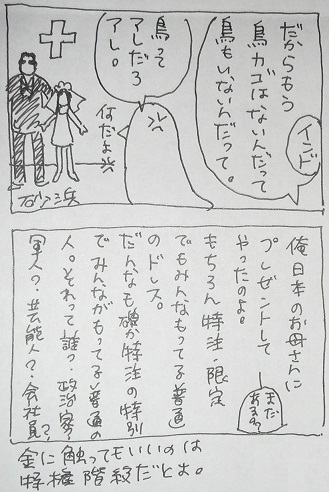 だからもう
鳥カゴはないんだって
鳥もいないんだって。
インド
鳥って
アレだろ
アレ。
何だよ
砂浜
俺日本のお母さんに
プレゼントして
やったのよ。
まだ
あるの?
もちろん特注・限定
でもみんなもってる普通
のドレス。
だんなも磯が特注の特別
でみんながもってる普通の
人。それって誰?政治家?
軍人?・芸能人?・会社員?
金に触ってもいいのは
特権階級だとよ。